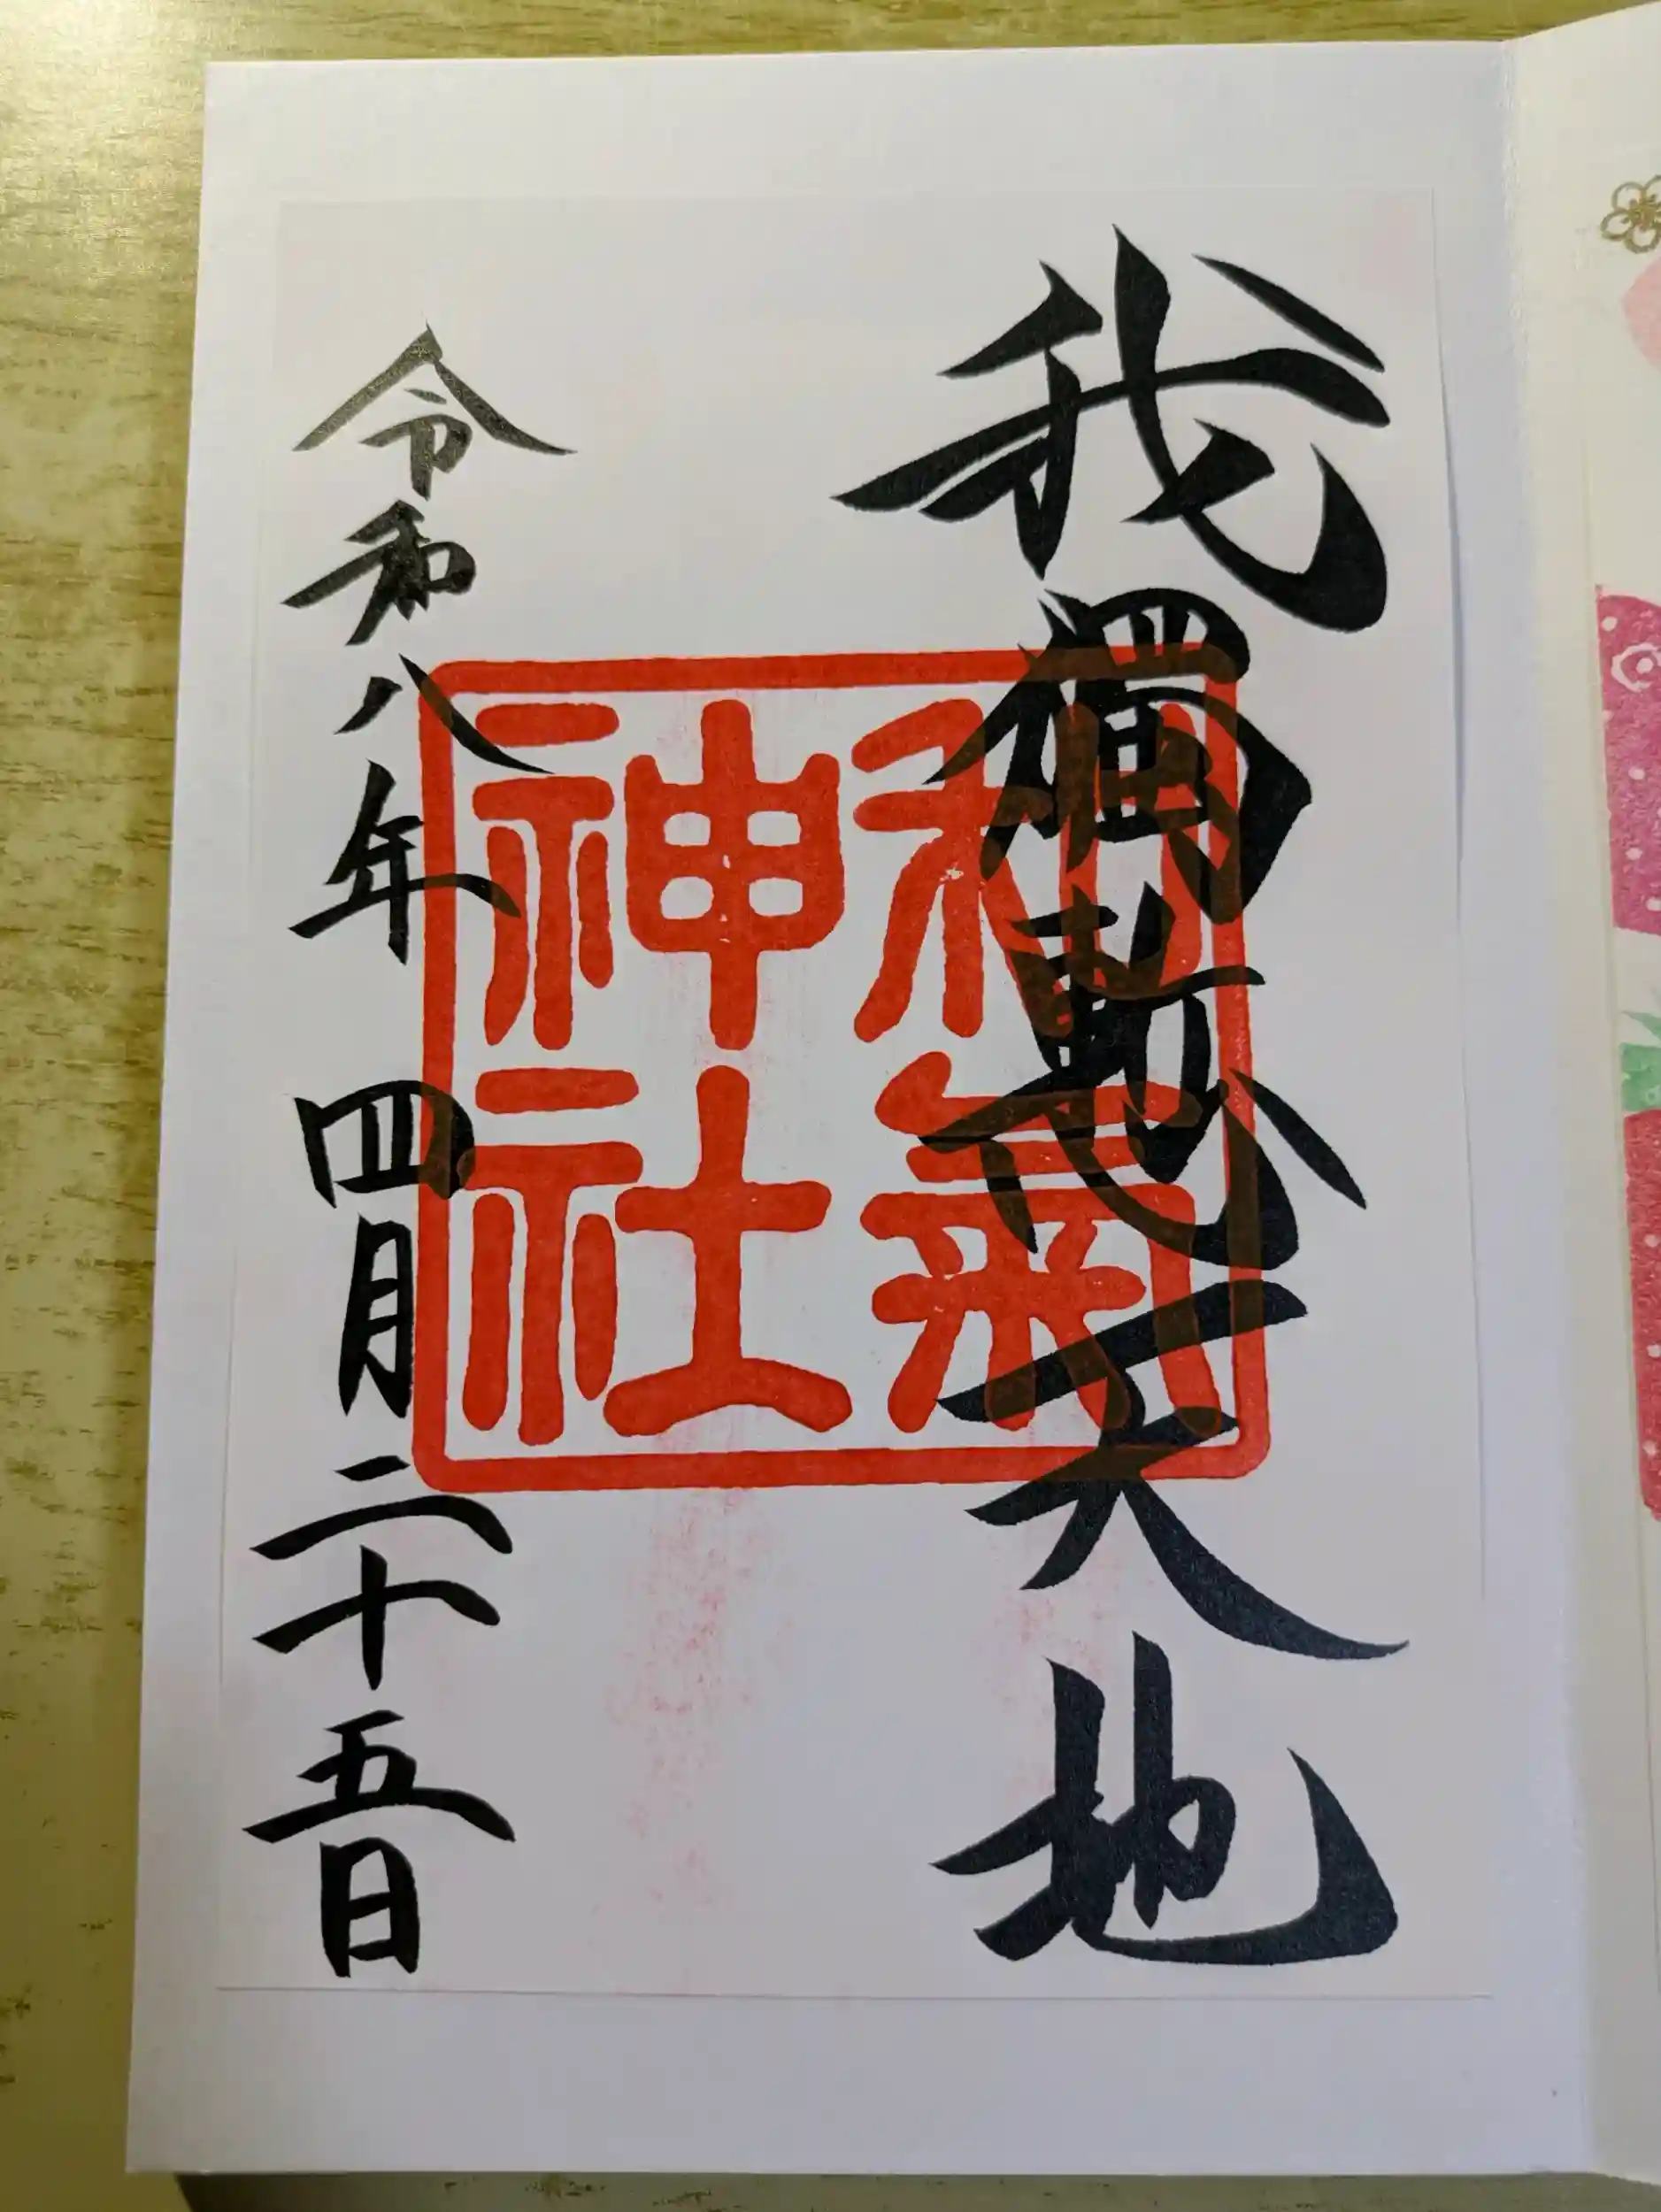 我獨慙天地
和氣
神社
令和八年 四月二十五日